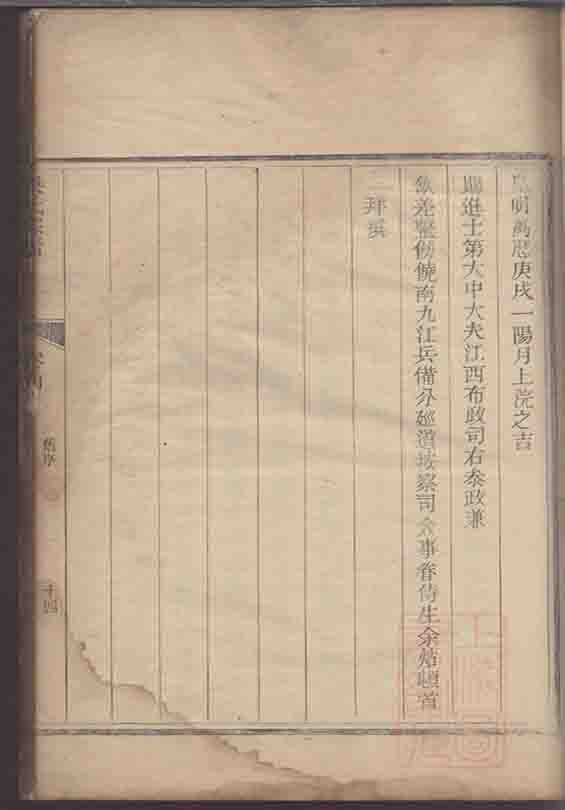 皇明萬曆庚戌一陽月上浣之吉
賜進士第大中大夫江西布政司右叅政兼
欽差整飭饒南九江兵備分廵道按察司僉事眷侍生余 頓首
拜撰
舊序
十四